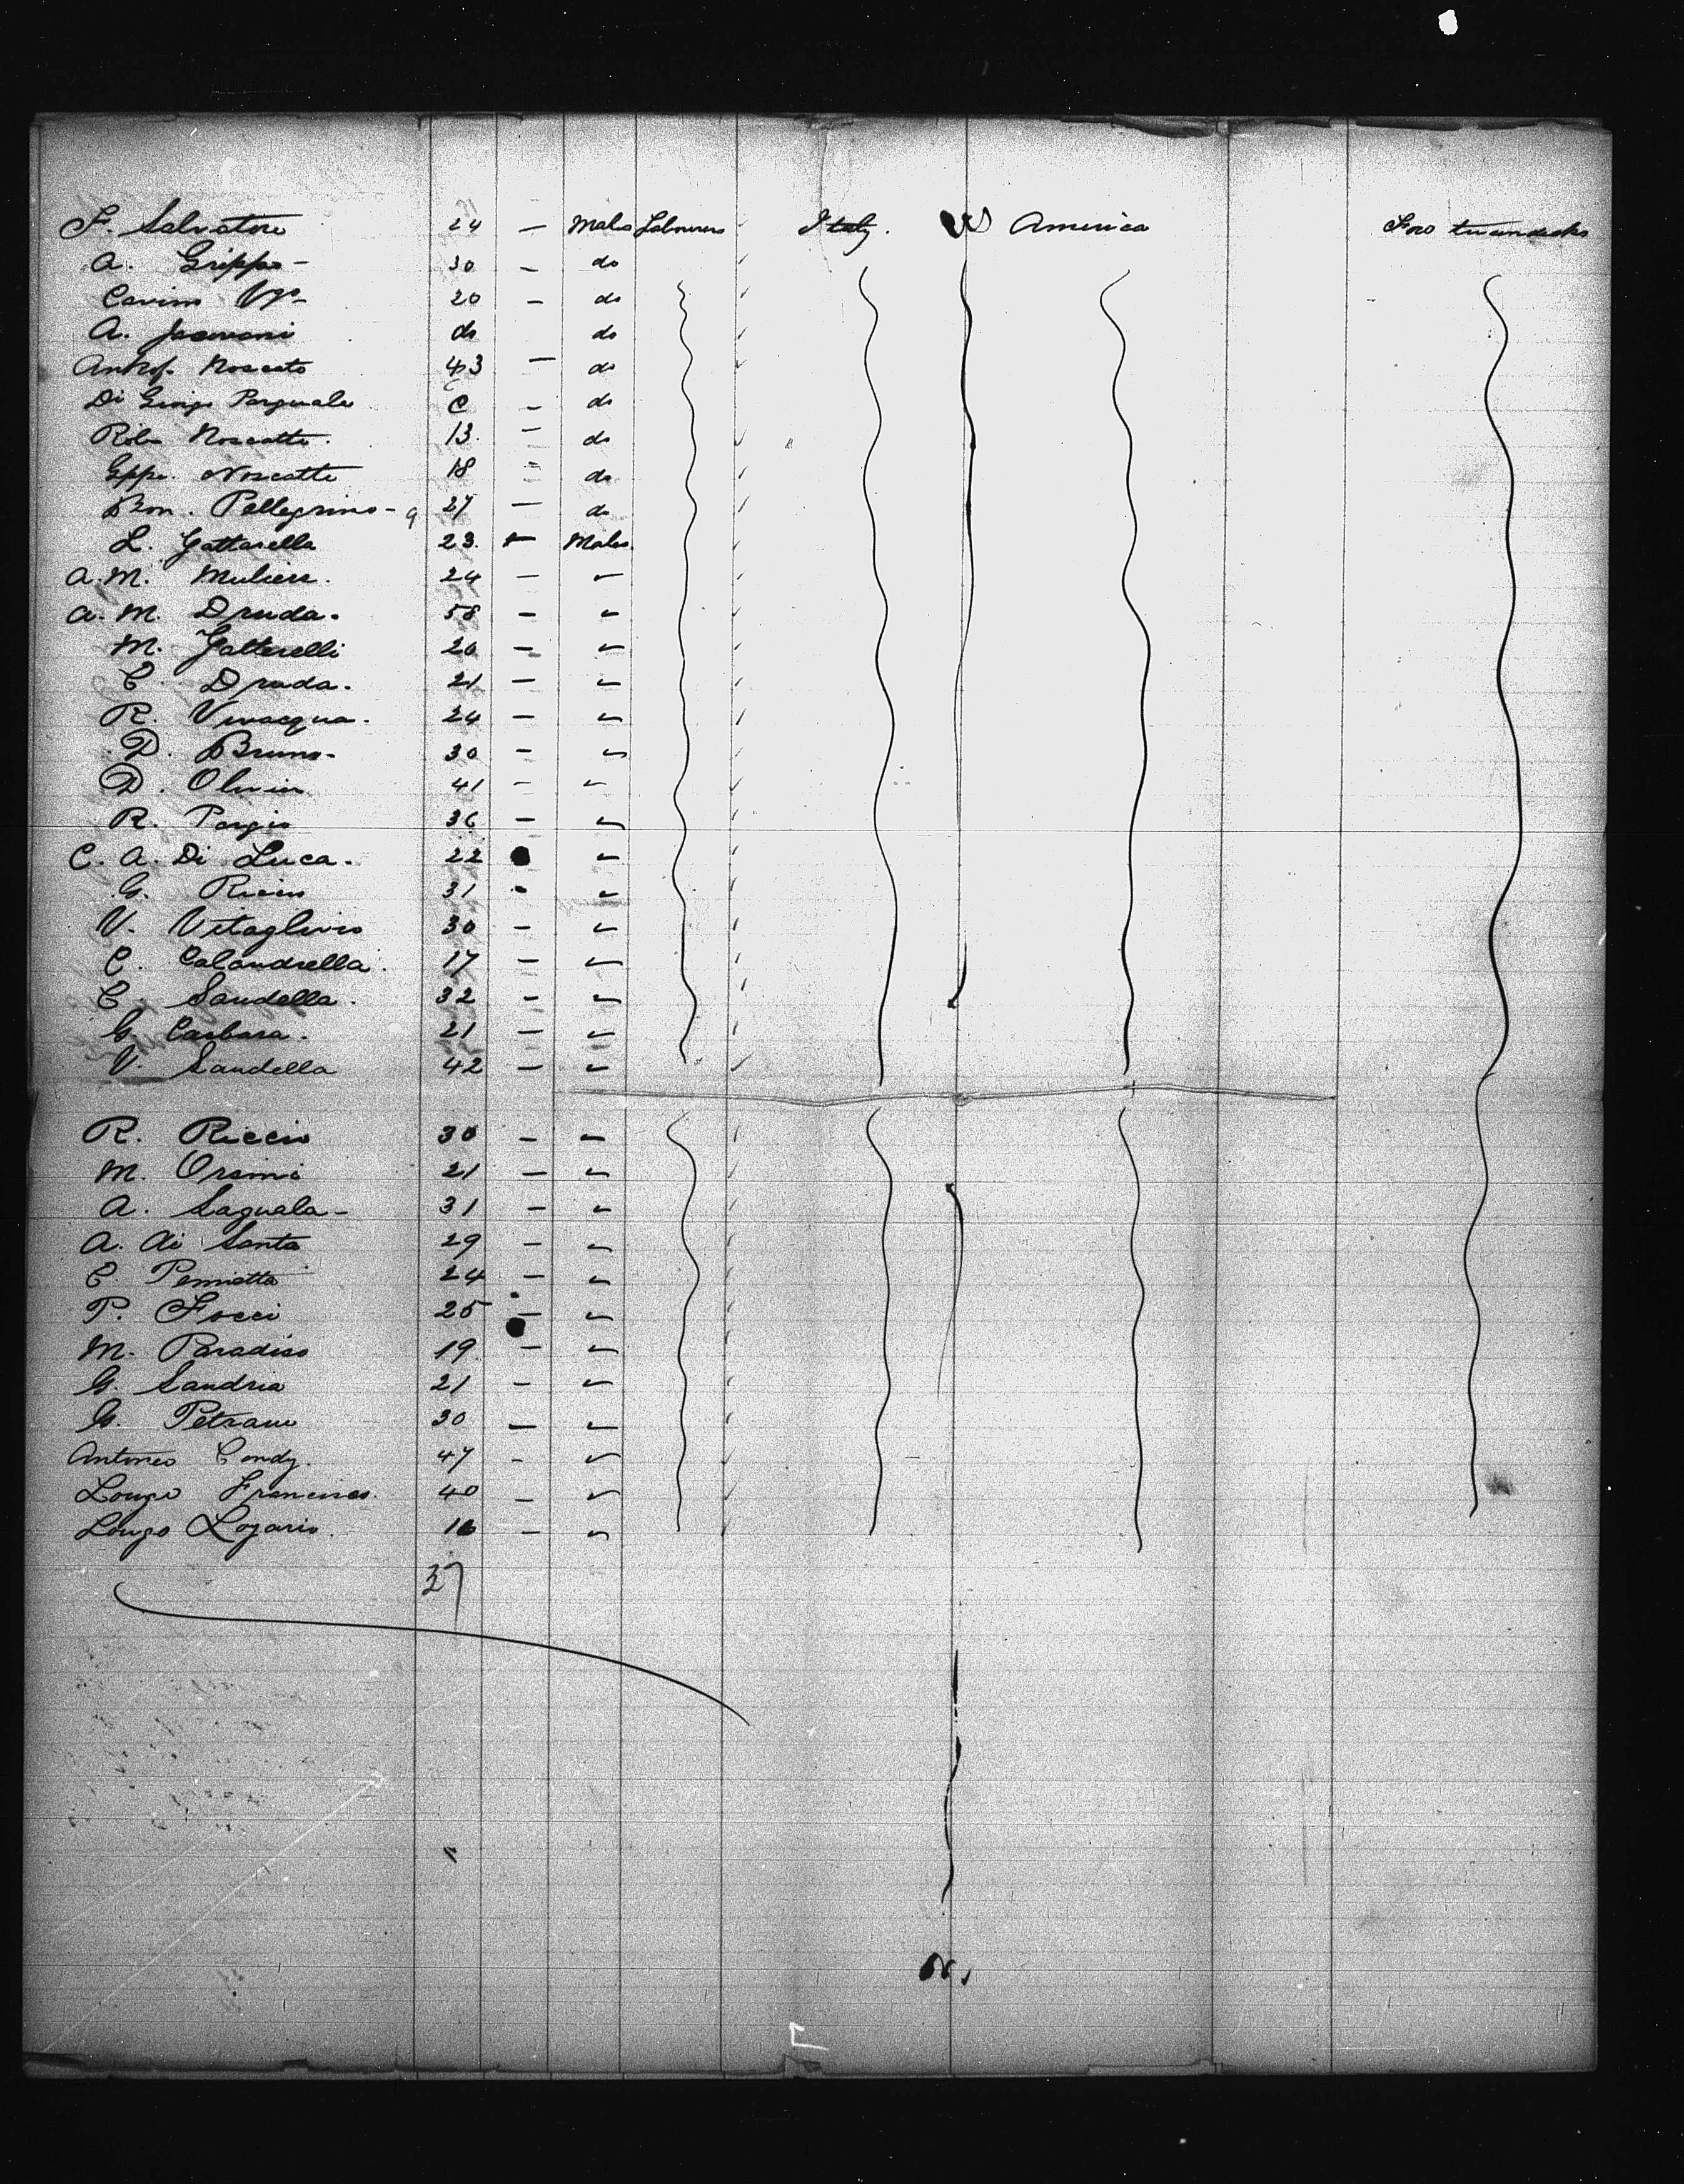 F. Salvatore 24 — Males Labourers Italy. US America Fore tweendecks
A. Grippo - 30 — do
20 — do
A. do do
Noscato 43 — do
Di Pasquale — do
Noscatto. 13. — do
Gppe. Noscatte 18 — do
Bon. Pellegrino - 27 — do
L. Gattarella 23. — Males.
A. M. Muliere. 24 —
A. M. Druda. 58 —
M. Gatterelli 20 —
C. Druda. 21 —
R. Vivacqua. 24 —
D. Bruno. 30 —
D. Olivier 41 —
R. 36 —
C. A. Di Luca. 22
G. 31 -
V. Vitaglivio 30 -
C. Calandrella. 17 —
C. Sandella. 32 -
G. Carbara. 21 —
V. Sandella 42 —
R. Riccio 30 —
M. Orsini 21 —
A. Saguala - 31 -
A. di Santo 29 —
C. 24 —
P. Focci 25 —
M. Paradiso 19. —
G. Sandria 21 -
G. Petrano 30 —
Antonio Condy. 47 -
Longo Francisco. 40 —
Longo Lozario. 16 —
37